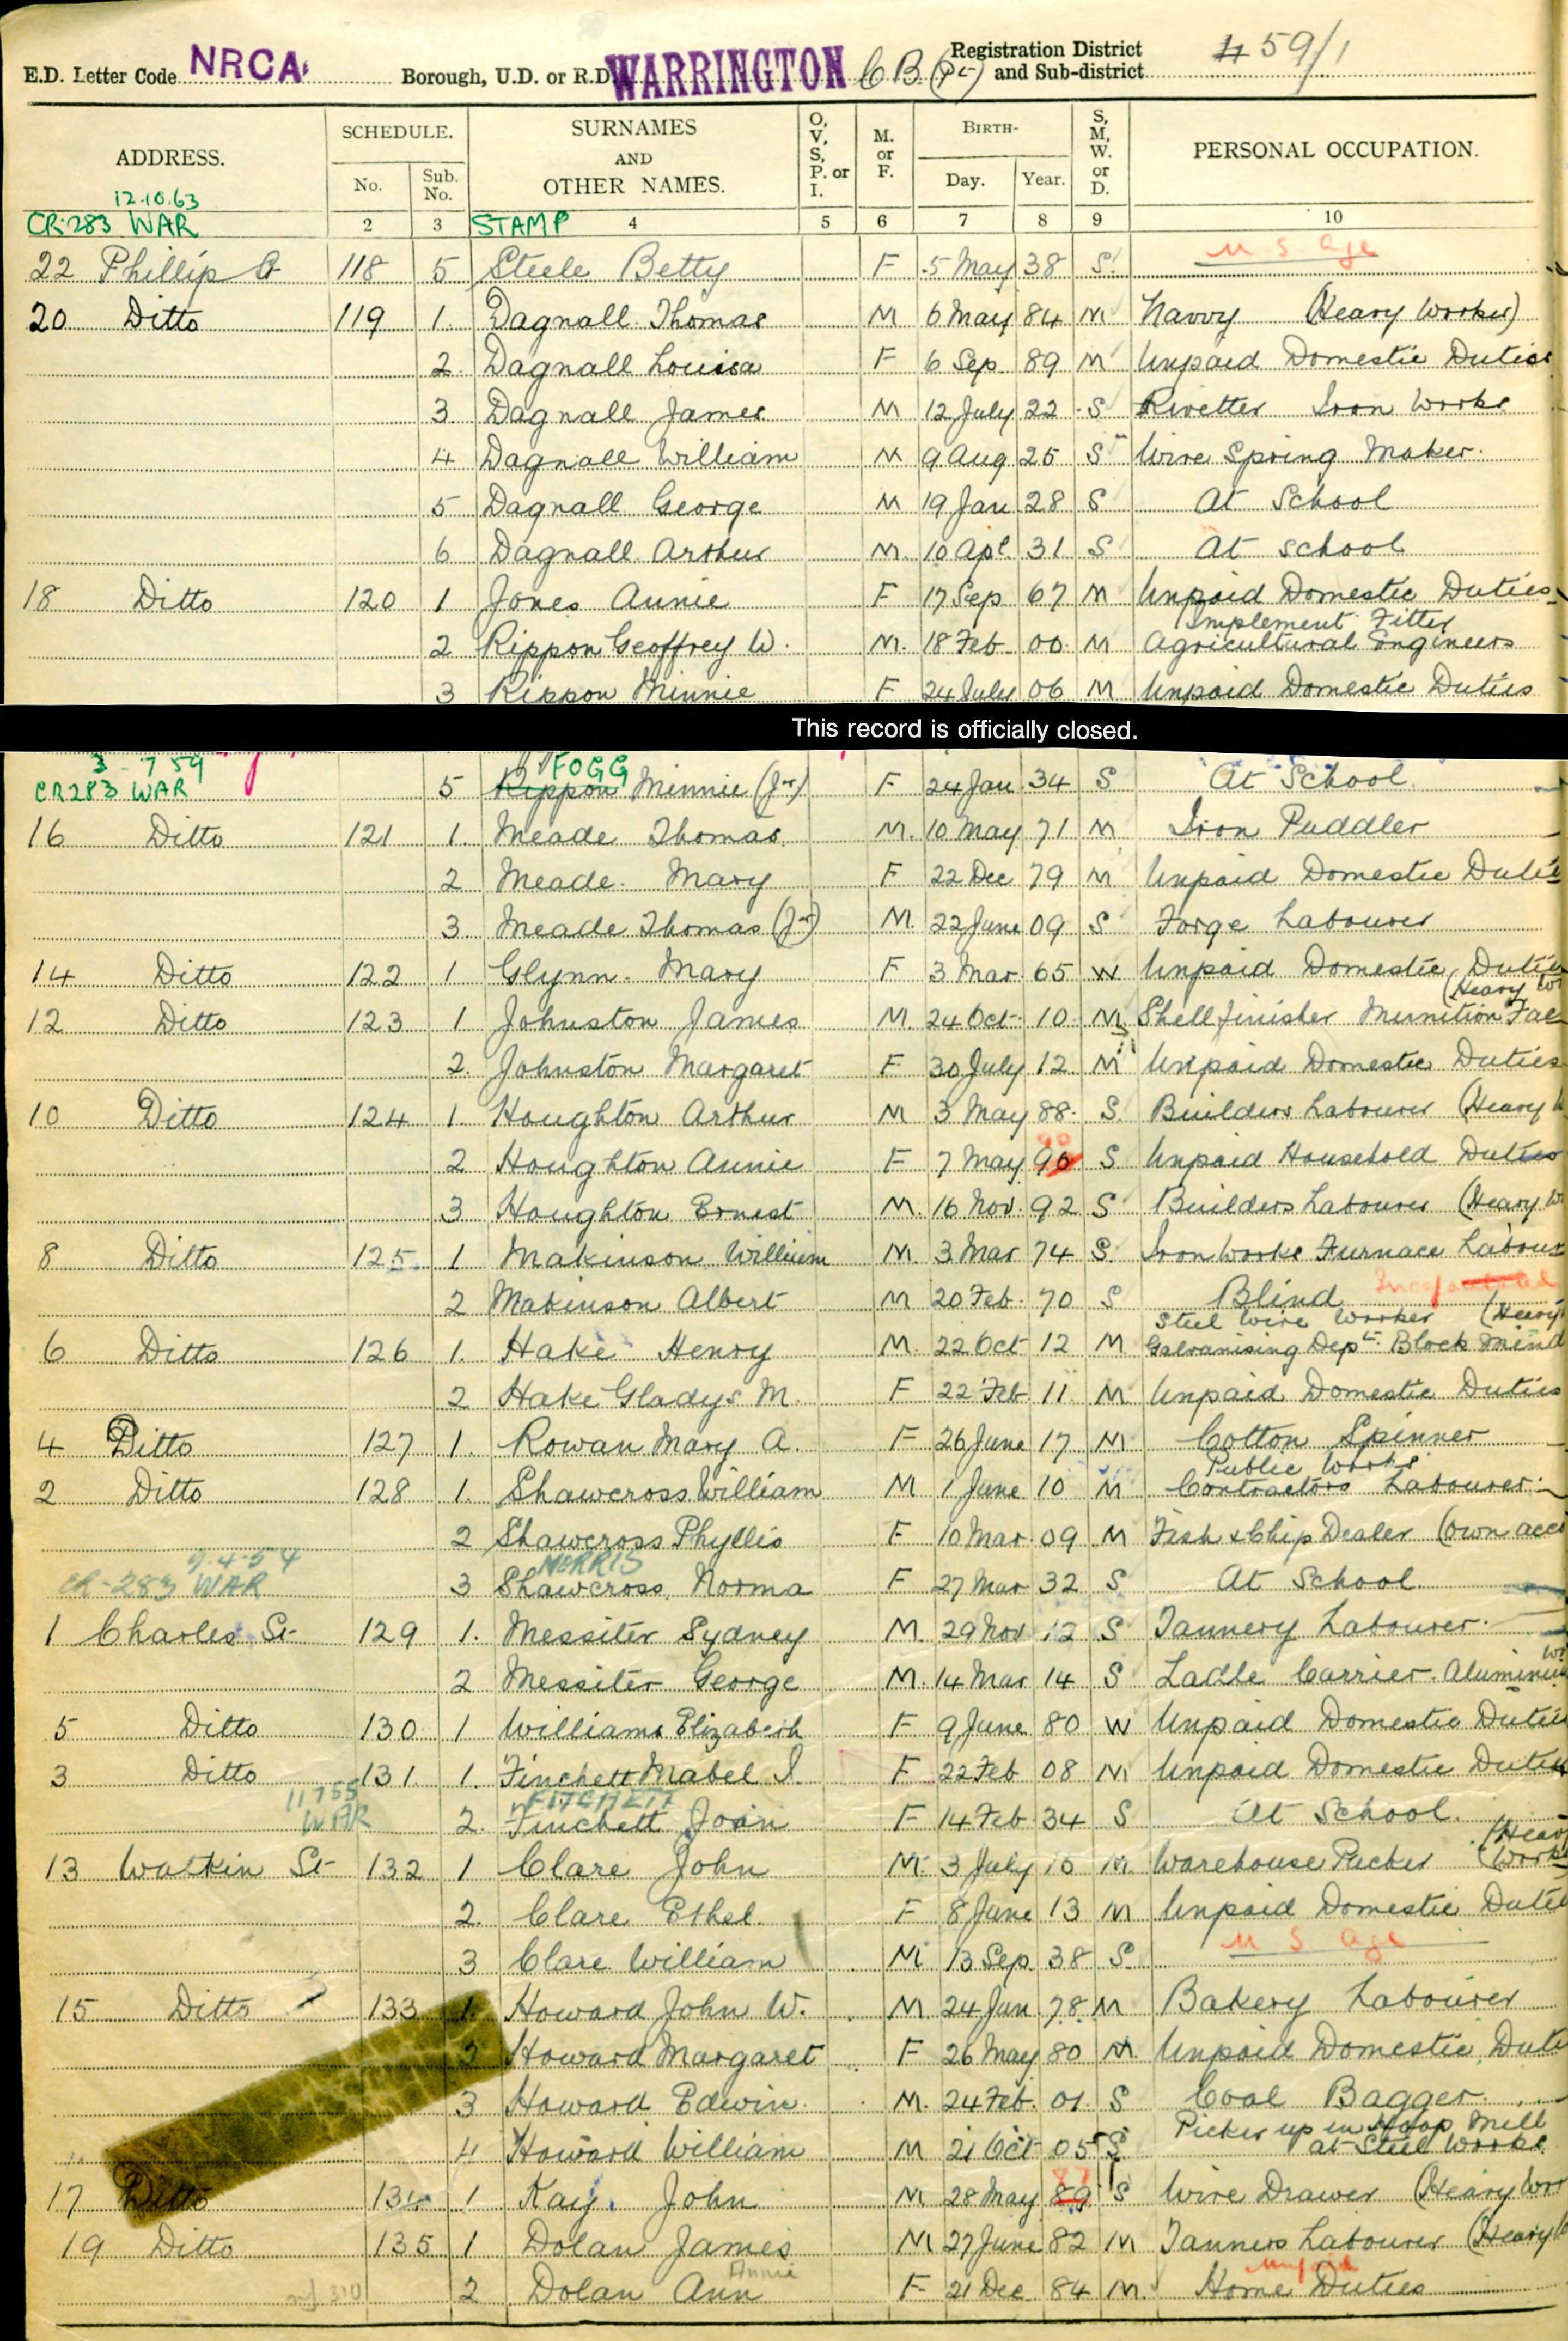 E.D. Letter Code NRCA Borough, U.D. or R.D. WARRINGTON C.B. (Pt) Registration District and Sub-district 459/1
ADDRESS. SCHEDULE. No. Sub. No. SURNAMES AND OTHER NAMES. O, V, S, P. or I. M. or F. BIRTH- Day. Year. S, M, W. or D. PERSONAL OCCUPATION.
12.10.63
CR.283 WAR 2 3 STAMP 4 5 6 7 8 9 10
M S age
22 Phillip St 118 5 Steele Betty F 5 May 38 S.
20 Ditto 119 1. Dagnall Thomas M 6 May 84 M Navvy (Heavy Worker)
2. Dagnall Louisa F 6 Sep 89 M Unpaid Domestic Duties
3. Dagnall James M 12 July 22 S Rivetter Iron Works
4 Dagnall William M 9 Aug 25 S Wire Spring Maker.
5 Dagnall George M 19 Jan 28 S At School
6 Dagnall Arthur M. 10 Apl. 31 S At school
18 Ditto 120 1 Jones Annie F 17 Sep 67 M Unpaid Domestic Duties
Implement Fitter
2 Rippon Geoffrey W. M. 18 Feb 00 M Agricultural Engineers
3 Rippon Minnie F 24 July 06 M Unpaid Domestic Duties
This record is officially closed.
3 7 59 FOGG
CR283 WAR 5 Rippon Minnie (Jr) F 24 Jan 34 S At School
16 Ditto 121 1. Meade Thomas M. 10 May 71 M Iron Puddler
2 Meade. Mary F 22 Dec 79 M Unpaid Domestic Dutie
3 Meade Thomas (Jr) M. 22 June 09 S Forge Labourer
14 Ditto 122 1 Glynn. Mary F 3 Mar. 65 W Unpaid Domestic Duties
(Heavy Wo
12 Ditto 123 1 Johnston James M. 24 Oct. 10 M Shell finisher Munition Fac
2. Johnston Margaret F 30 July 12 M Unpaid Domestic Duties
10 Ditto 124 1. Houghton Arthur M 3 May 88. S. Builders Labourer (Heavy W
90
2 Houghton Annie F 7 May 96 S Unpaid Household Duties
3 Houghton Ernest M. 16 Nov. 92 S Builders Labourer (Heavy W
8 Ditto 125 1 Makinson William M. 3 Mar 74 S. Iron Works Furnace Labour
2 Makinson Albert M 20 Feb. 70 S Blind
Steel Wire Worker (Heavy
6 Ditto 126 1. Hake Henry M. 22 Oct 12 M Galvanising Dept. Block Mind
2 Hake Gladys M. F 22 Feb 11. M Unpaid Domestic Duties
4 Ditto 127 1. Rowan Mary A. F 26 June 17 M Cotton Spinner
Public Works
2 Ditto 128 1. Shawcross William M 1 June 10 M Contractors Labourer.
2 Shawcross Phyllis F 10 Mar 09 M Fish & Chip Dealer (own acc
9.4.54 MORRIS
CR-283 WAR 3 Shawcross Norma F 27 Mar 32 S At School
1 Charles St 129 1. Messiter Sydney M 29 Nov 12 S Tannery Labourer.
2 Messiter George M. 14 Mar 14 S Ladle Carrier. Aluminium
5 Ditto 130 1 Williams Elizabeth F 9 June 80 W Unpaid Domestic Dutie
3 Ditto 131 1. Finchett Mabel I. F 22 Feb 08 M Unpaid Domestic Dutie
11 7 55 FITCHETT
WAR 2. Finchett Joan F 14 Feb 34 S At School.
(Heavy
13 Watkin St 132 1 Clare John M. 3 July 15 M Warehouse Packer (Work
2. Clare Ethel F 8 June 13 M Unpaid Domestic Dutie
M S age
3 Clare William M 13 Sep 38 S
15 Ditto 133 1. Howard John W. M 24 Jan 78 M Bakery Labourer
2 Howard Margaret F 26 May 80 M. Unpaid Domestic Duti
3 Howard Edwin M. 24 Feb. 01 S Coal Bagger
Picker up in Hoop Mill
4 Howard William M 21 Oct 05 S at Steel Works
87
17 Ditto 134 1 Kay. John M 28 May 89 S Wire Drawer (Heavy Wor
19 Ditto 135 1 Dolan James M 27 June 82 M Tanners Labourer (Heavy
Annie unpaid
2 Dolan Ann F 21 Dec 84 M. Home Duties